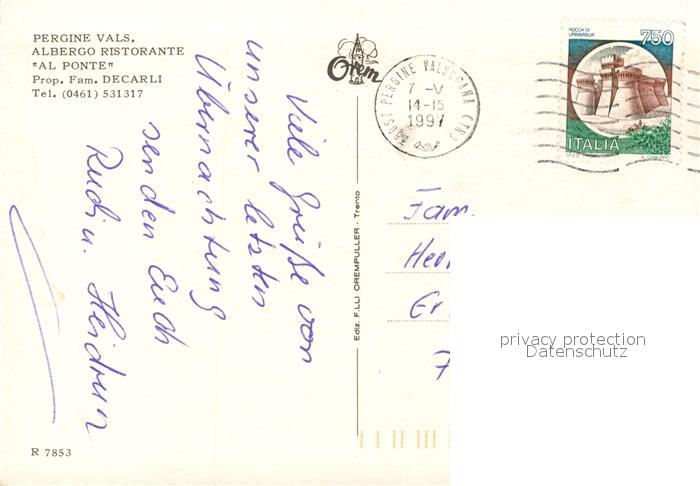 PERGINE VALS.
ALBERGO RISTORANTE
"AL PONTE"
Prop. Fam. DECARLI
Tel. (0461) 531317
Orem
38057 PERGINE VALSUGANA (TN)
7 -V
14-15
1997
ROCCA DI
URBISAGLIA
750
ITALIA
Viele Grüße von
unserer letzten
Übernachtung
senden Euch
Rudi u. Heidrun
Ediz. F.LLI OREMPULLER - Trento
Fam.
privacy protection
Datenschutz
R 7853